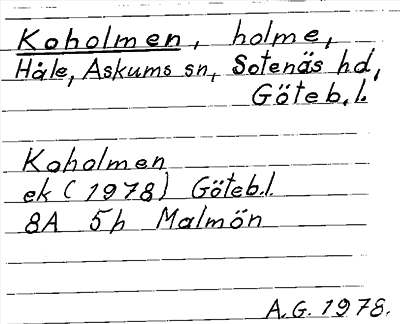 Koholmen, holme,
Håle, Askums sn, Sotenäs hd,
Göteb. l.
Koholmen
ek (1978) Göteb.l.
8A 5h Malmön
A.G. 1978.